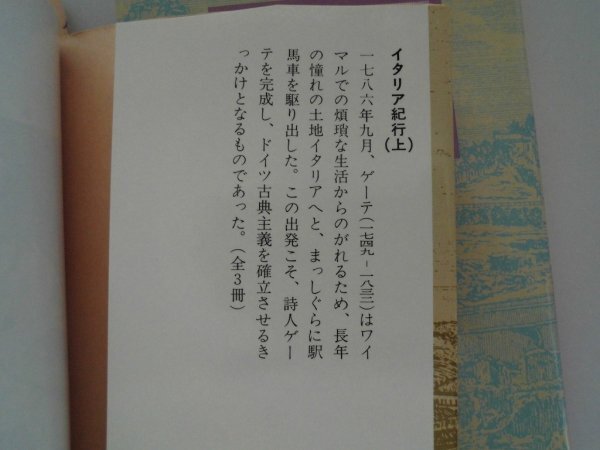 イタリア紀行(上)
一七八六年九月、ゲーテ(一七四九-一八三二)はワイ
マルでの煩瑣な生活からのがれるため、長年
の憧れの土地イタリアへと、まっしぐらに駅
馬車を駆り出した。この出発こそ、詩人ゲー
テを完成し、ドイツ古典主義を確立させるき
っかけとなるものであった。(全3冊)